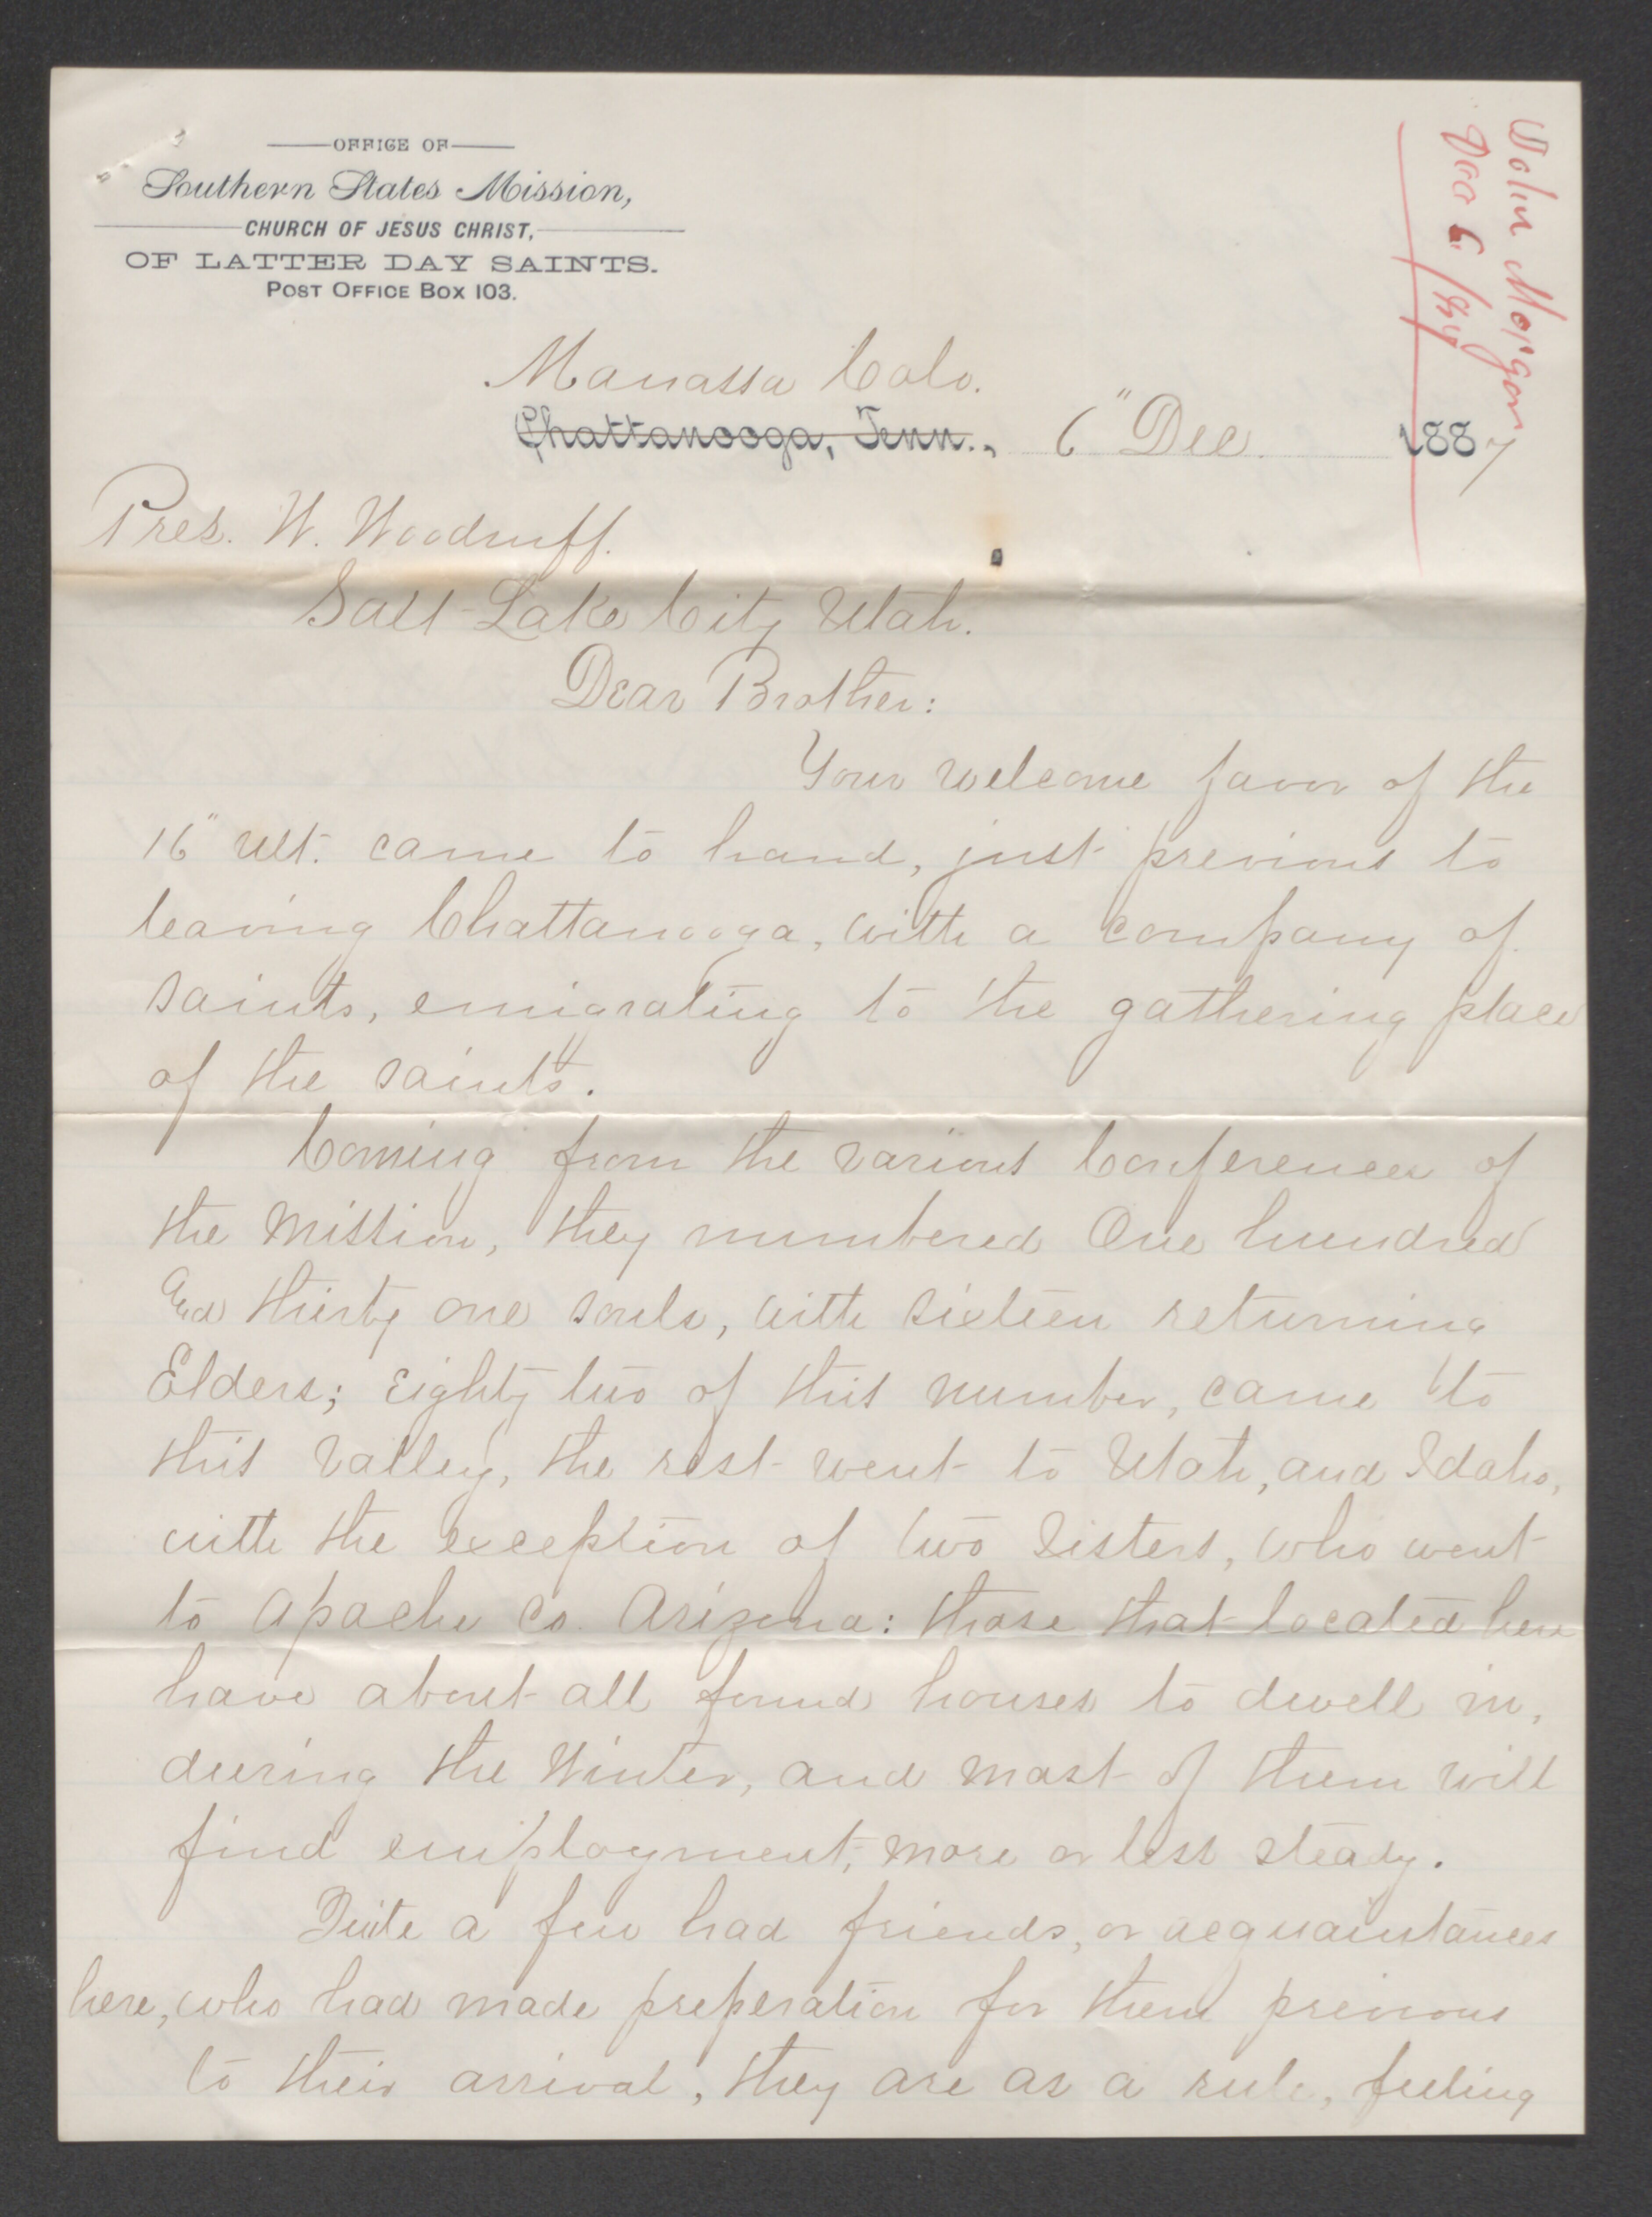 OFFICE OF
Southern States Mission,
CHURCH OF JESUS CHRIST,
OF LATTER DAY SAINTS.
POST OFFICE BOX 103.
John Morgan
Dec 6 /87
Manassa Colo.
Chattanooga, Tenn., 6" Dec. 1887
Pres. W. Woodruff.
Salt Lake City Utah.
Dear Brother:
Your welcome favor of the
16" ult. came to hand, just previous to
leaving Chattanooga, with a company of
saints, emigrating to the gathering place
of the saints.
Coming from the various Conferences of
the Mission, they numbered One hundred
and thirty one souls, with sixteen returning
Elders; eighty two of this number, came to
this valley, the rest went to Utah, and Idaho,
with the exception of two Sisters, who went
to Apache Co. Arizona: those that located here
have about all found houses to dwell in,
during the Winter, and most of them will
find employment, more or less steady.
Quite a few had friends, or acquaintances
here, who had made preperation for them previous
to their arrival, they are as a rule, feeling